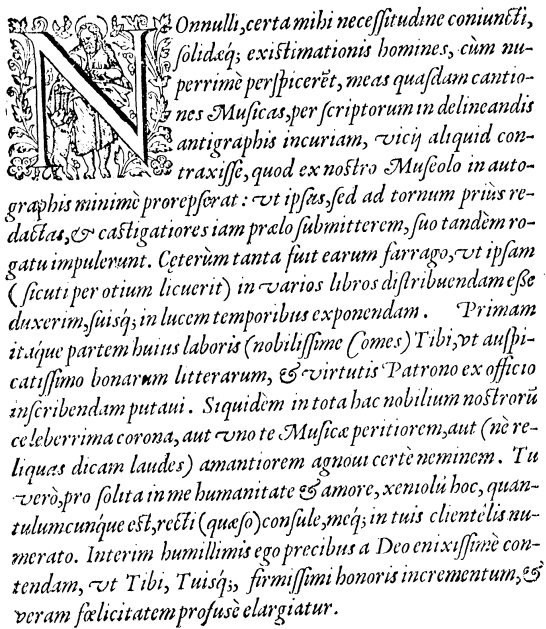 NOnnulli, certa mihi neceſſitudine coniuncti,
ſolidæq́; existimationis homines, cùm nu-
perrimè perſpicerēt, meas quaſdam cantio-
nes Muſicas, per ſcriptorum in delineandis
antigraphis incuriam, vicij aliquid con-
traxiſſe, quod ex noſtro Muſeolo in auto-
graphis minimè prorepſerat: vt ipſas, ſed ad tornum priùs re-
dactas, & caſtigatiores iam prælo ſubmitterem, ſuo tandèm ro-
gatu impulerunt. Cęterùm tanta fuit earum farrago, vt ipſam
(ſicuti per otium licuerit) in varios libros diſtribuendam eſſe
duxerim, ſuisq́; in lucem temporibus exponendam. Primam
itaq́ue partem huius laboris (nobiliſſime Comes) Tibi, vt auſpi-
catiſſimo bonarum litterarum, & virtutis Patrono ex officio
inſcribendam putaui. Siquidèm in tota hac nobilium noſtrorū
celeberrima corona, aut vno te Muſicæ peritiorem, aut (nè re-
liquas dicam laudes) amantiorem agnoui certè neminem. Tu
verò, pro ſolita in me humanitate & amore, xeniolú hoc, quan-
tulumcunq́ue eſt, recti (quæſo) conſule, meq́; in tuis clientèlis nu-
merato. Interim humillimis ego precibus a Deo enixiſſimè con-
tendam, vt Tibi, Tuisq́;, firmiſſimi honoris incrementum, &
veram fœlicitatem profusè elargiatur.